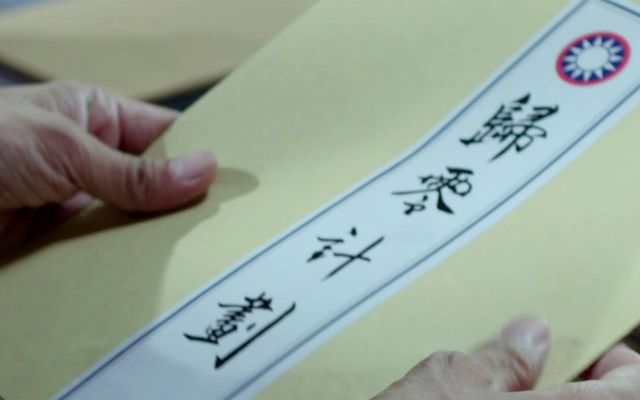 歸零計劃